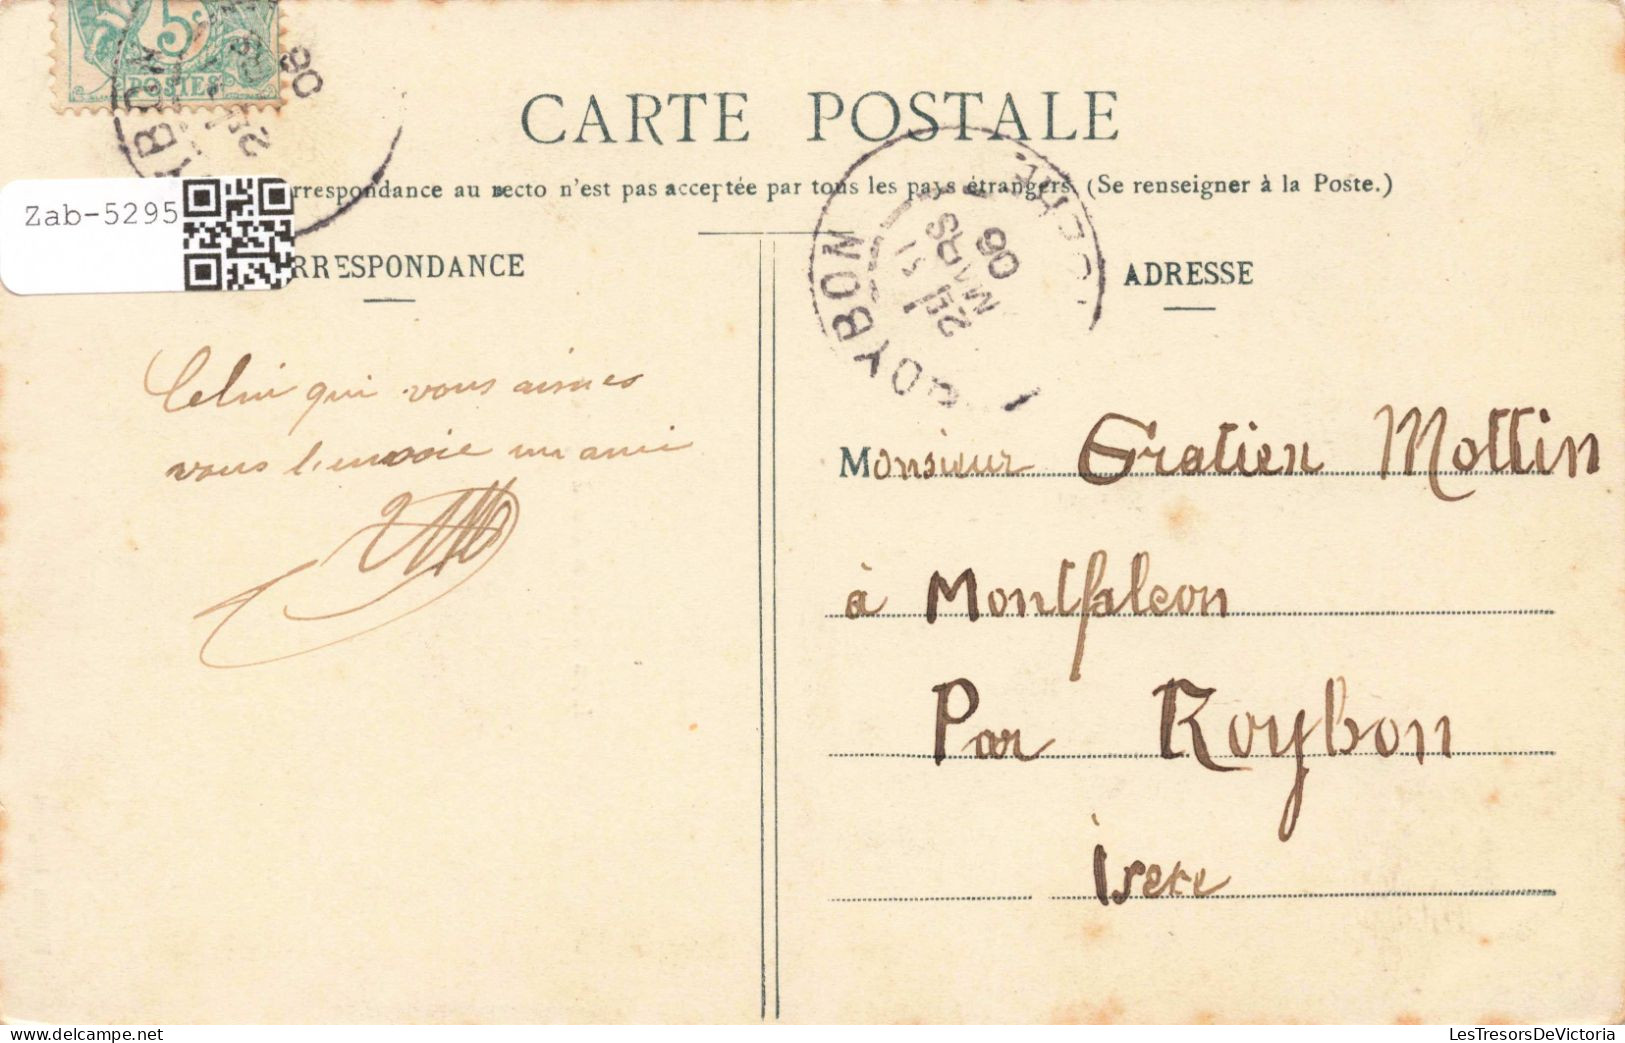 5c
POSTES
CARTE POSTALE
rrespondance au recto n'est pas acceptée par tous les pays étrangers. (Se renseigner à la Poste.)
Zab-5295
RRESPONDANCE
ADRESSE
ROYBON
MARS
06
Celui qui vous aimes
vous l'envoie un ami
Monsieur Gratien Mottin
à Montfalcon
Par Roybon
isere
LesTresorsDeVictoria